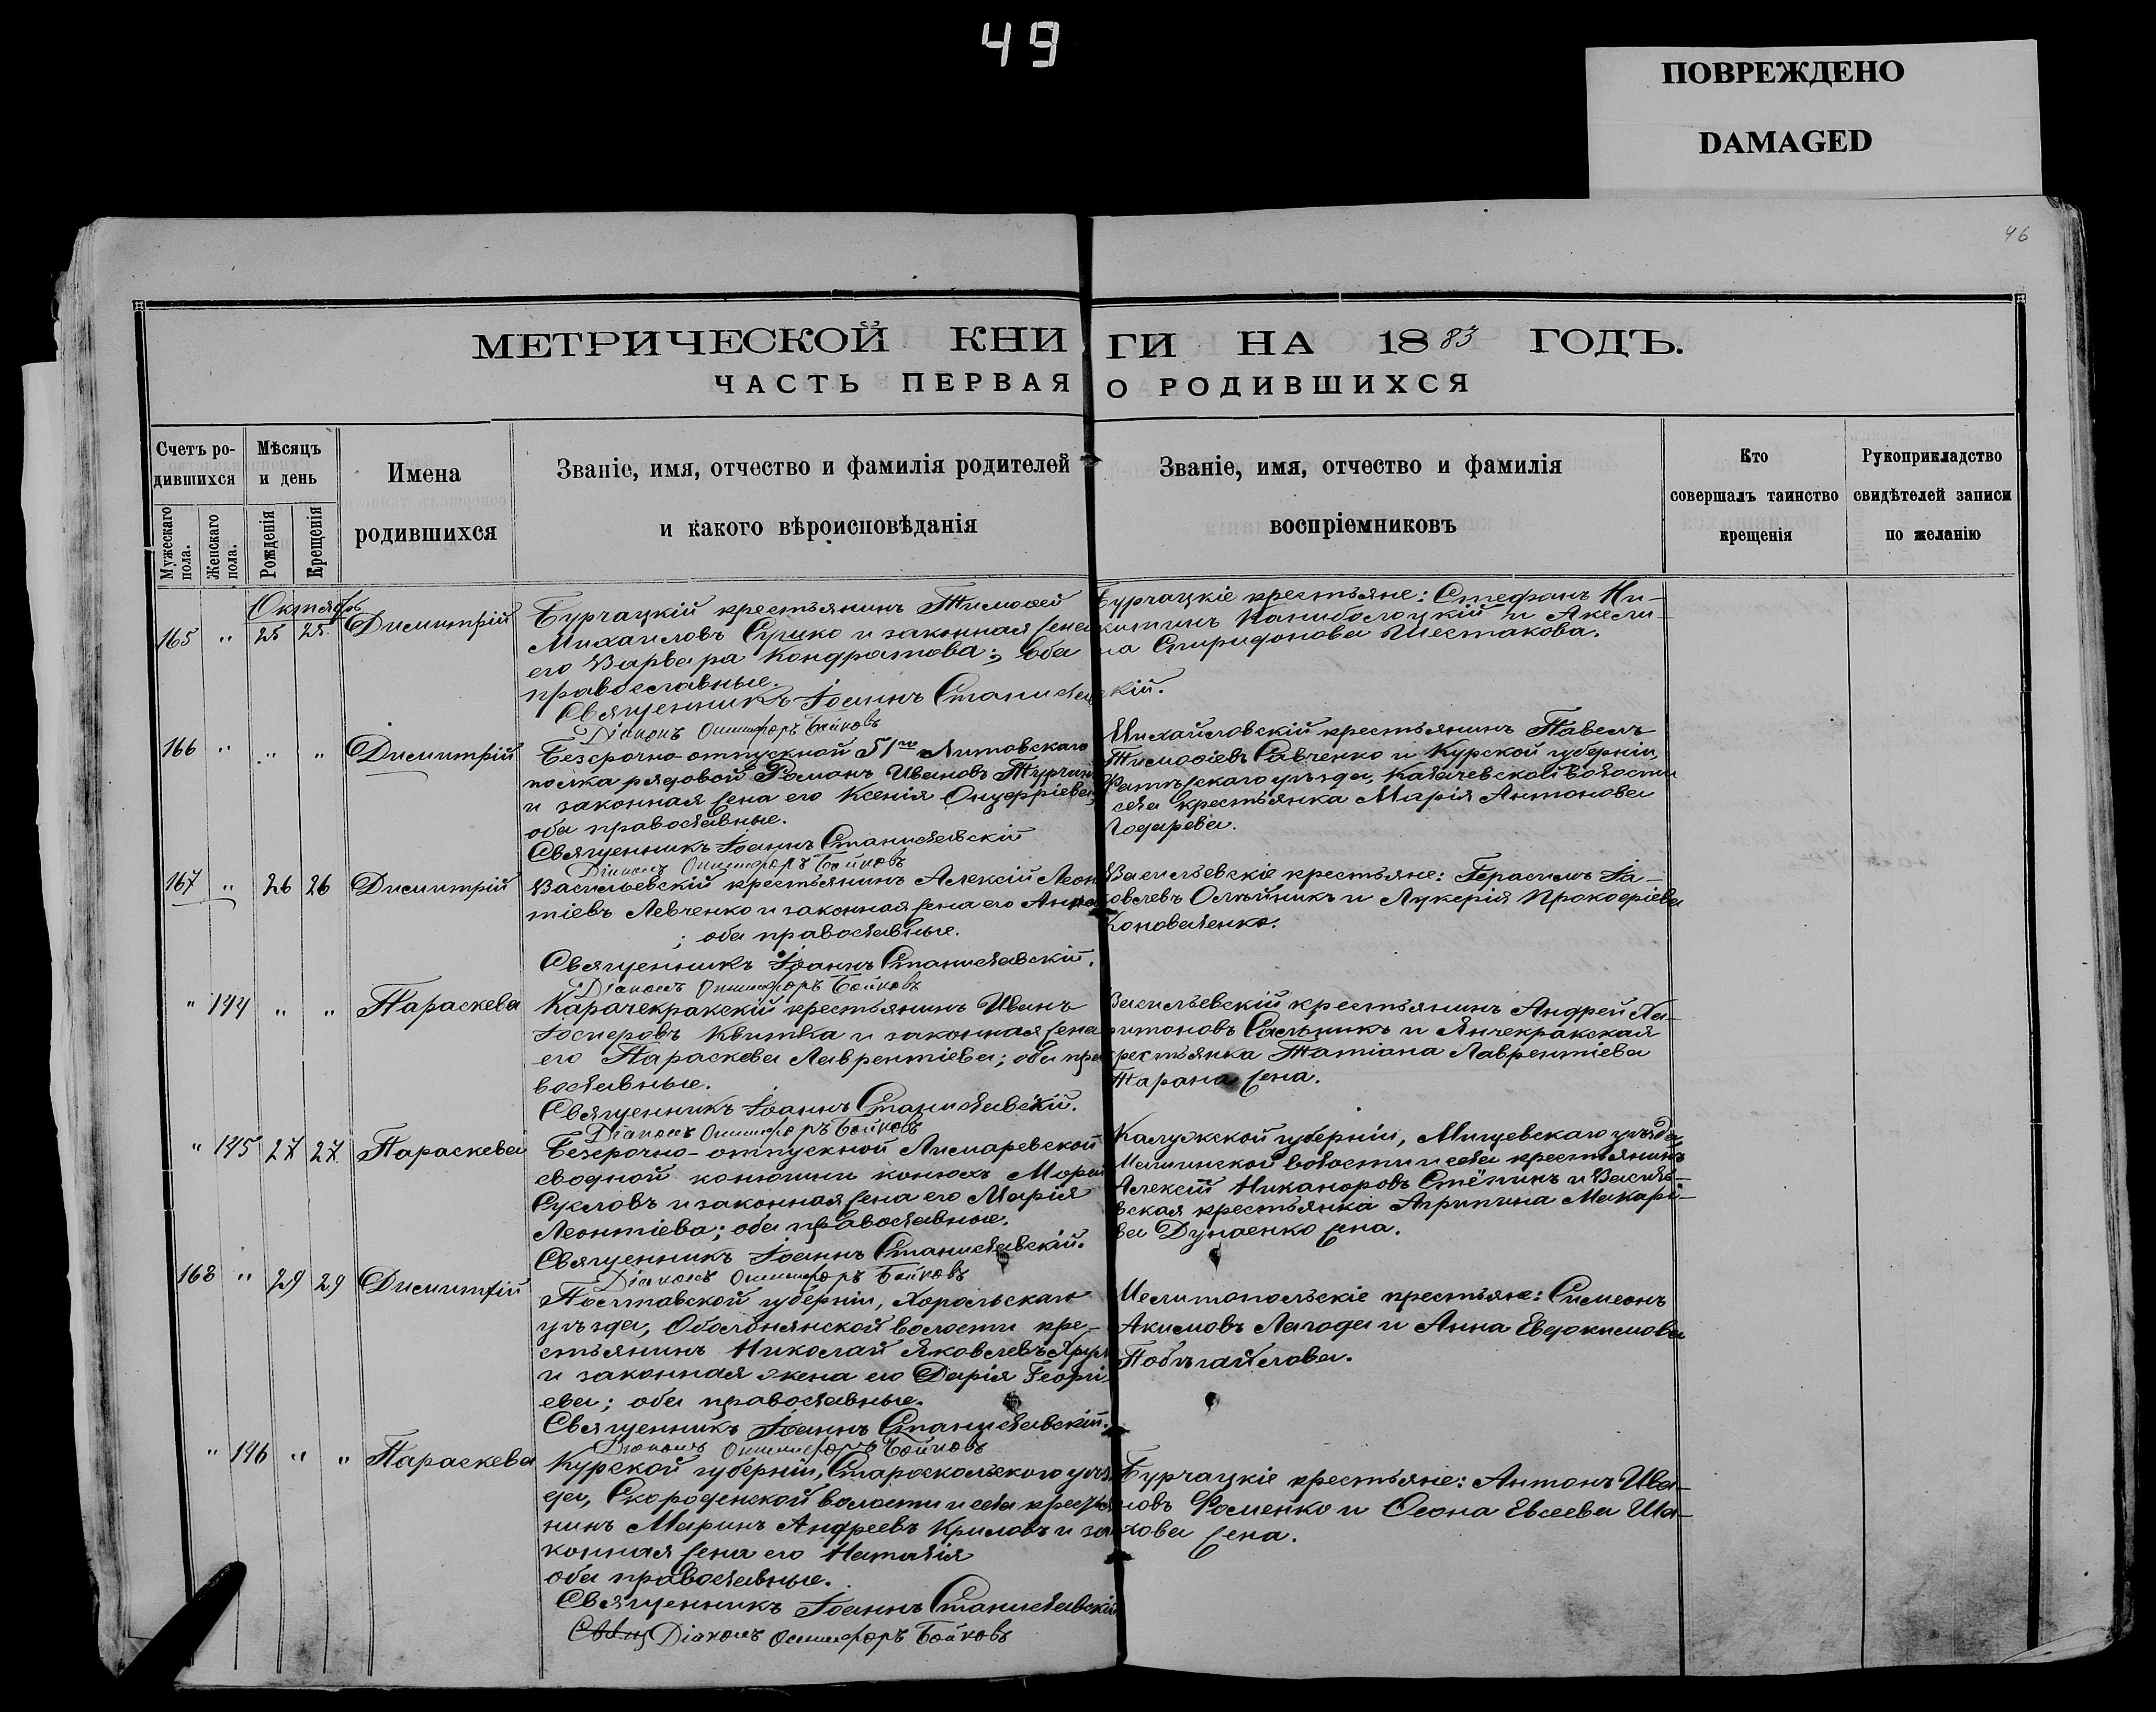 49
ПОВРЕЖДЕНО
DAMAGED
46
МЕТРИЧЕСКОЙ КНИГИ НА 1883 ГОДЪ.
ЧАСТЬ ПЕРВАЯ О РОДИВШИХСЯ
Счетъ родившихся
Мужескаго пола.
Женскаго пола.
Мѣсяцъ и день
Рожденія
Крещенія
Имена
родившихся
Званіе, имя, отчество и фамилія родителей
и какого вѣроисповѣданія
Званіе, имя, отчество и фамилія
воспріемниковъ
Кто
совершалъ таинство
крещенія
Рукоприкладство
свидѣтелей записи
по желанію
Октябрь
165 " 25 25. Димитрій
Бурчацкій крестьянинъ Тимофей
Михаиловъ Сушко и законная жена
его Варвара Кондратова; оба
православные.
Священникъ Іоаннъ Станиславскій.
Діаконъ Онисифоръ Бойковъ
Бурчацкіе крестьяне: Стефанъ Ни-
китинъ и Акели-
на Спиридонова Шестакова.
166 " " " Димитрій
Безсрочно-отпускной 51го Литовскаго
полка рядовой Романъ Ивановъ
и законная жена его Ксенія Онуфріева,
оба православные.
Священникъ Іоаннъ Станиславскій
Діаконъ Онисифоръ Бойковъ
Михайловскій крестьянинъ Павелъ
Тимофіевъ Савченко и Курской губерніи,
Фатѣжскаго уѣзда, волости
села крестьянка Марія Антонова
167 " 26 26 Димитрій
Васильевскій крестьянинъ Алексій Леон
тіевъ Левченко и законная жена его Анна
; оба православные.
Священникъ Іоаннъ Станиславскій.
Діаконъ Онисифоръ Бойковъ
Васильевскіе крестьяне: Герасимъ Іа-
ковлевъ Олѣйникъ и Лукерія Прокофіева
Коноваленко.
" 144 " " Параскева
Карачекракскій крестьянинъ Иванъ
Іосифовъ Квитка и законная жена
его Параскева Лаврентіева; оба пра
вославные.
Священникъ Іоаннъ Станиславскій.
Діаконъ Онисифоръ Бойковъ
Васильевскій крестьянинъ Андрей Ха-
ритоновъ Сальникъ и Янчекракская
крестьянка Татіана Лаврентіева
Тарана жена.
" 145 27 27. Параскева
Безсрочно-отпускной Лимаревской
сводной конюшни конюхъ
Сусловъ и законная жена его Марія
Леонтіева; оба православные.
Священникъ Іоаннъ Станиславскій.
Діаконъ Онисифоръ Бойковъ
Калужской губерніи, уѣзда
волости и села крестьянинъ
Алексій Никаноровъ Стёпинъ и Василь-
евская крестьянка Агрипина Макарі-
ва Дунаенко жена.
168 " 29 29 Димитрій
Полтавской губерніи, Хорольскаго
уѣзда, Оболонянской волости кре-
стьянинъ Николай Яковлевъ
и законная жена его Дарія Георгі-
ева; оба православные.
Священникъ Іоаннъ Станиславскій.
Діаконъ Онисифоръ Бойковъ
Мелитопольскіе крестьяне: Симеонъ
Акимовъ Лагода и Анна Евдокимова
Побѣгайлова.
" 146 " " Параскева
Курской губерніи, Старооскольскаго уѣз
да, Скороденской волости и села крестья
нинъ Маринъ Андреевъ Криловъ и за
конная жена его Наталія
оба православные.
Священникъ Іоаннъ Станиславскій
Діаконъ Онисифоръ Бойковъ
Бурчацкіе крестьяне: Антонъ Ива-
новъ Фоменко и Феона Евсеева Ша-
хова жена.